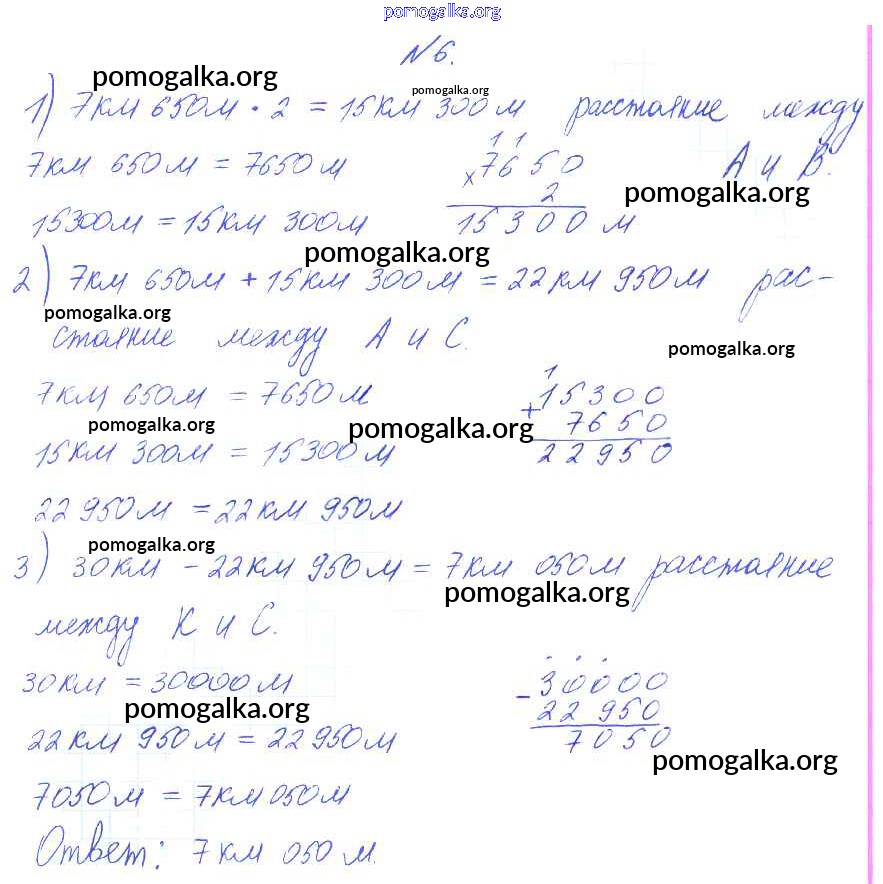 pomogalka.org
№6.
pomogalka.org pomogalka.org
1) 7км 650м · 2 = 15км 300м расстояние между
А и В.
7км 650м = 7650м
1 1
× 7650
2
15300 м
pomogalka.org
15300м = 15км 300м
pomogalka.org
2) 7км 650м + 15км 300м = 22км 950м рас-
pomogalka.org
стояние между А и С.
pomogalka.org
7км 650м = 7650м
1
+ 15300
7650
22950
pomogalka.org pomogalka.org
15км 300м = 15300м
22 950м = 22км 950м
pomogalka.org
3) 30км - 22км 950м = 7км 050м расстояние
pomogalka.org
между К и С.
30км = 30000м
. . .
- 30000
22 950
7050
pomogalka.org
22км 950м = 22950м
pomogalka.org
7050м = 7км 050м
Ответ: 7км 050м.